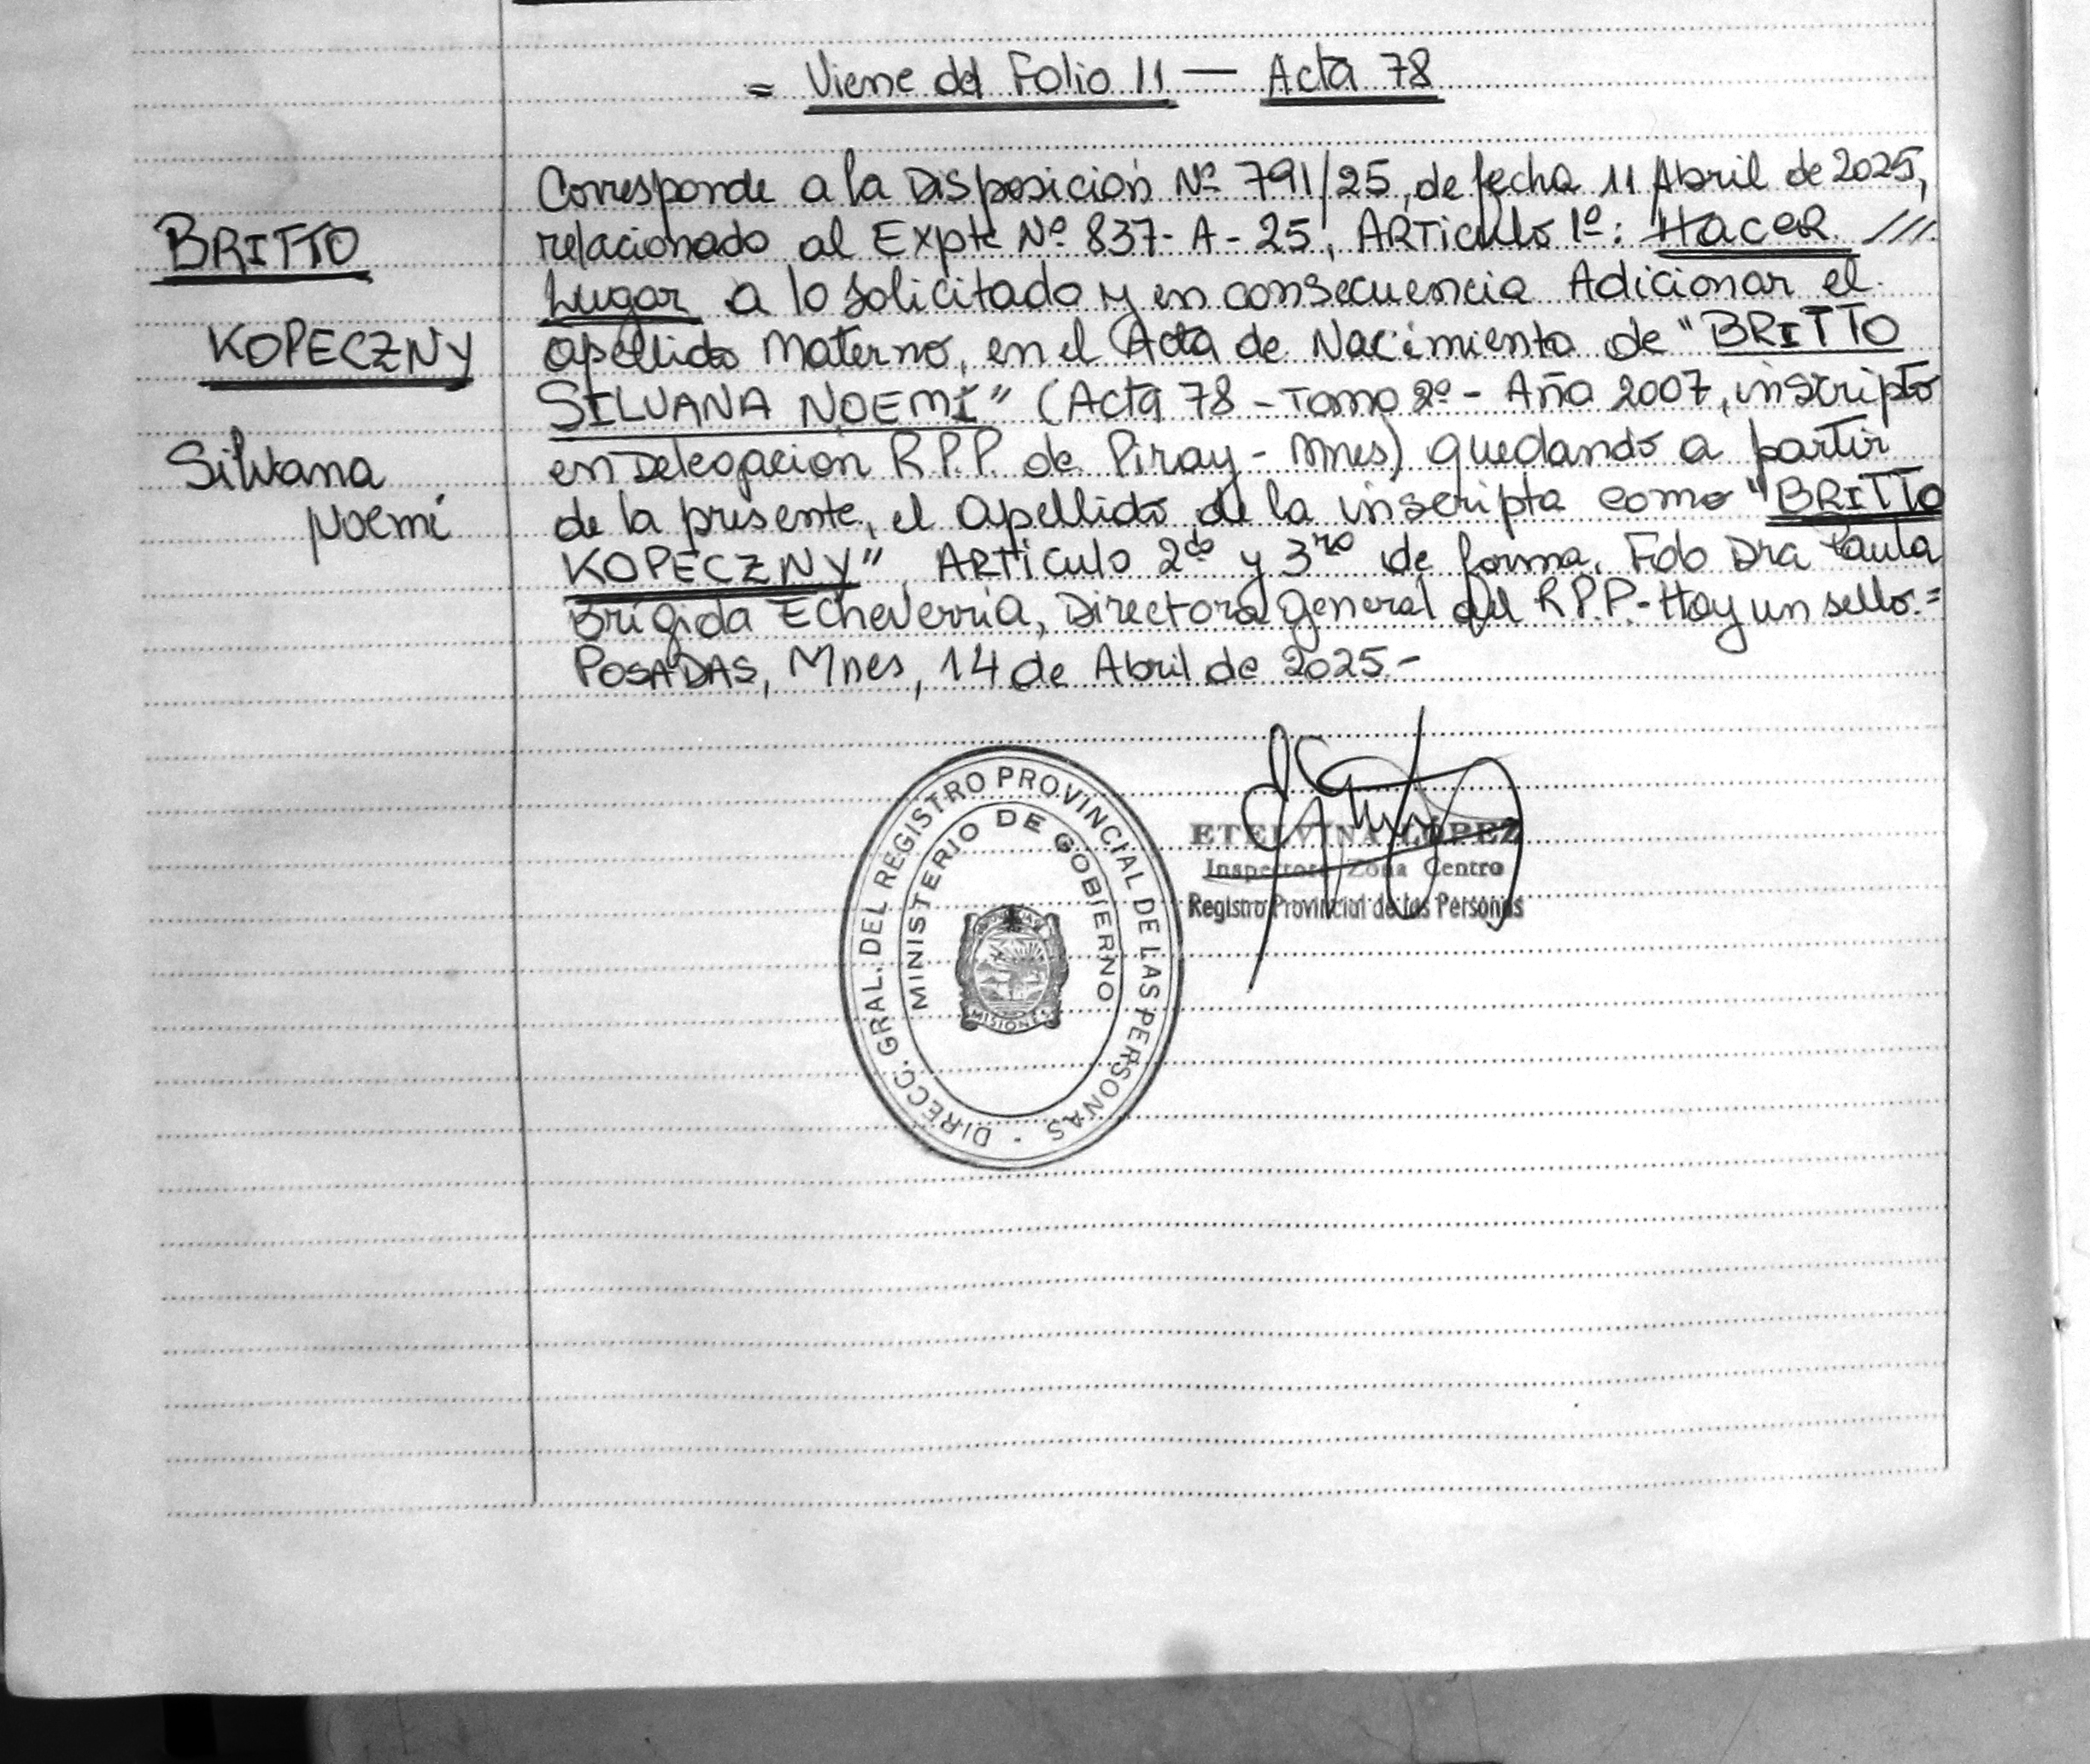 = Viene del Folio 11 — Acta 78
BRITTO
KOPECZNY
Silvana
Noemí
Corresponde a la Disposición Nº 791/25, de fecha 11 Abril de 2025,
relacionado al Expte Nº 837-A-25, ARTiculo 1º: HACER ///
Lugar a lo solicitado y en consecuencia Adicionar el
apellido Materno, en el Acta de Nacimiento de "BRITTO
SILVANA NOEMÍ" (Acta 78 - Tomo 2º - Año 2007, inscripto
en Delegación R.P.P. de Piray - Mnes) quedando a partir
de la presente, el apellido de la inscripta como "BRITTO
KOPECZNY". ARTiculo 2do y 3ro de forma. Fdo Dra Paula
Brígida Echeverria, Directora General del R.P.P.- Hay un sello.=
POSADAS, Mnes, 14 de Abril de 2025.-
DIRECC. GRAL. DEL REGISTRO PROVINCIAL DE LAS PERSONAS -
MINISTERIO DE GOBIERNO
MISIONES
ETELVINA LÓPEZ
Inspectora Zona Centro
Registro Provincial de las Personas